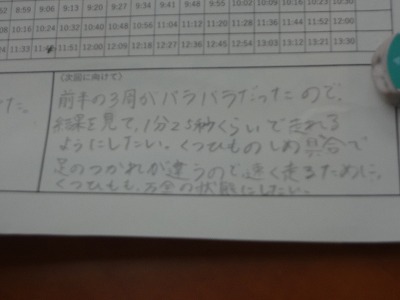 8:59 9:06 9:13 9:20 9:27 9:34 9:41 9:48 9:55 10:02 10:09 10:16
10:16 10:24 10:32 10:40 10:48 10:56 11:04 11:12 11:20 11:28 11:36 11:44 11:52 12:00
11:33 11:51 12:00 12:09 12:18 12:27 12:36 12:45 12:54 13:03 13:12 13:21 13:30
(次回に向けて)
前半の3周がバラバラだったので、
結果を見て、1分25秒くらいで走れる
ようにしたい。くつひものしめ具合で
足のつかれが違うので、速く走るために、
くつひもも、万全の状態にしたい。
た。